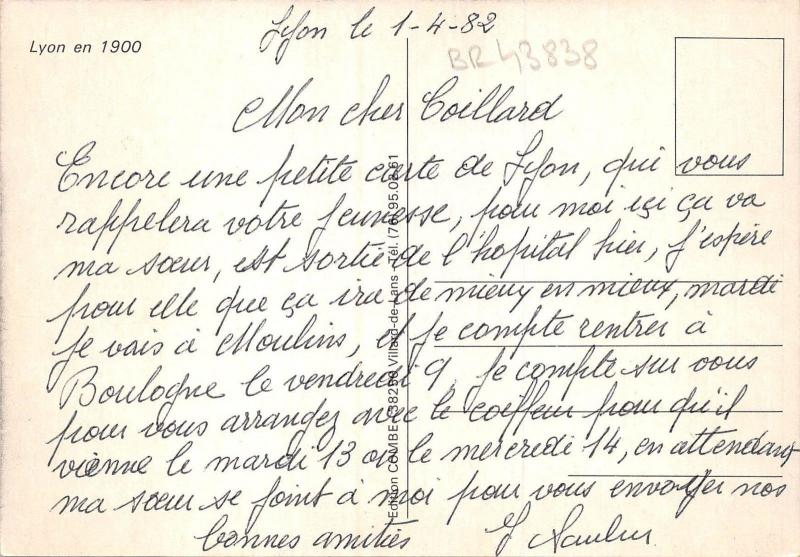 Lyon le 1-4-82
Lyon en 1900
BR43838
Mon cher Coillard
Encore une petite carte de Lyon, qui vous
rappelera votre jeunesse, pour moi ici ça va
ma sœur, est sortie de l'hopital hier, j'espère
pour elle que ça ira de mieux en mieux, mardi
je vais à Moulins, et je compte rentrer à
Boulogne le vendredi 9, je compte sur vous
pour vous arrangez avec le coiffeur pour qu'il
vienne le mardi 13 ou le mercredi 14, en attendant
ma sœur se joint à moi pour vous envoyer nos
bonnes amitiés
Edition COMBE - 38250 Villard-de-Lans - Tél. (76) 95.02.61